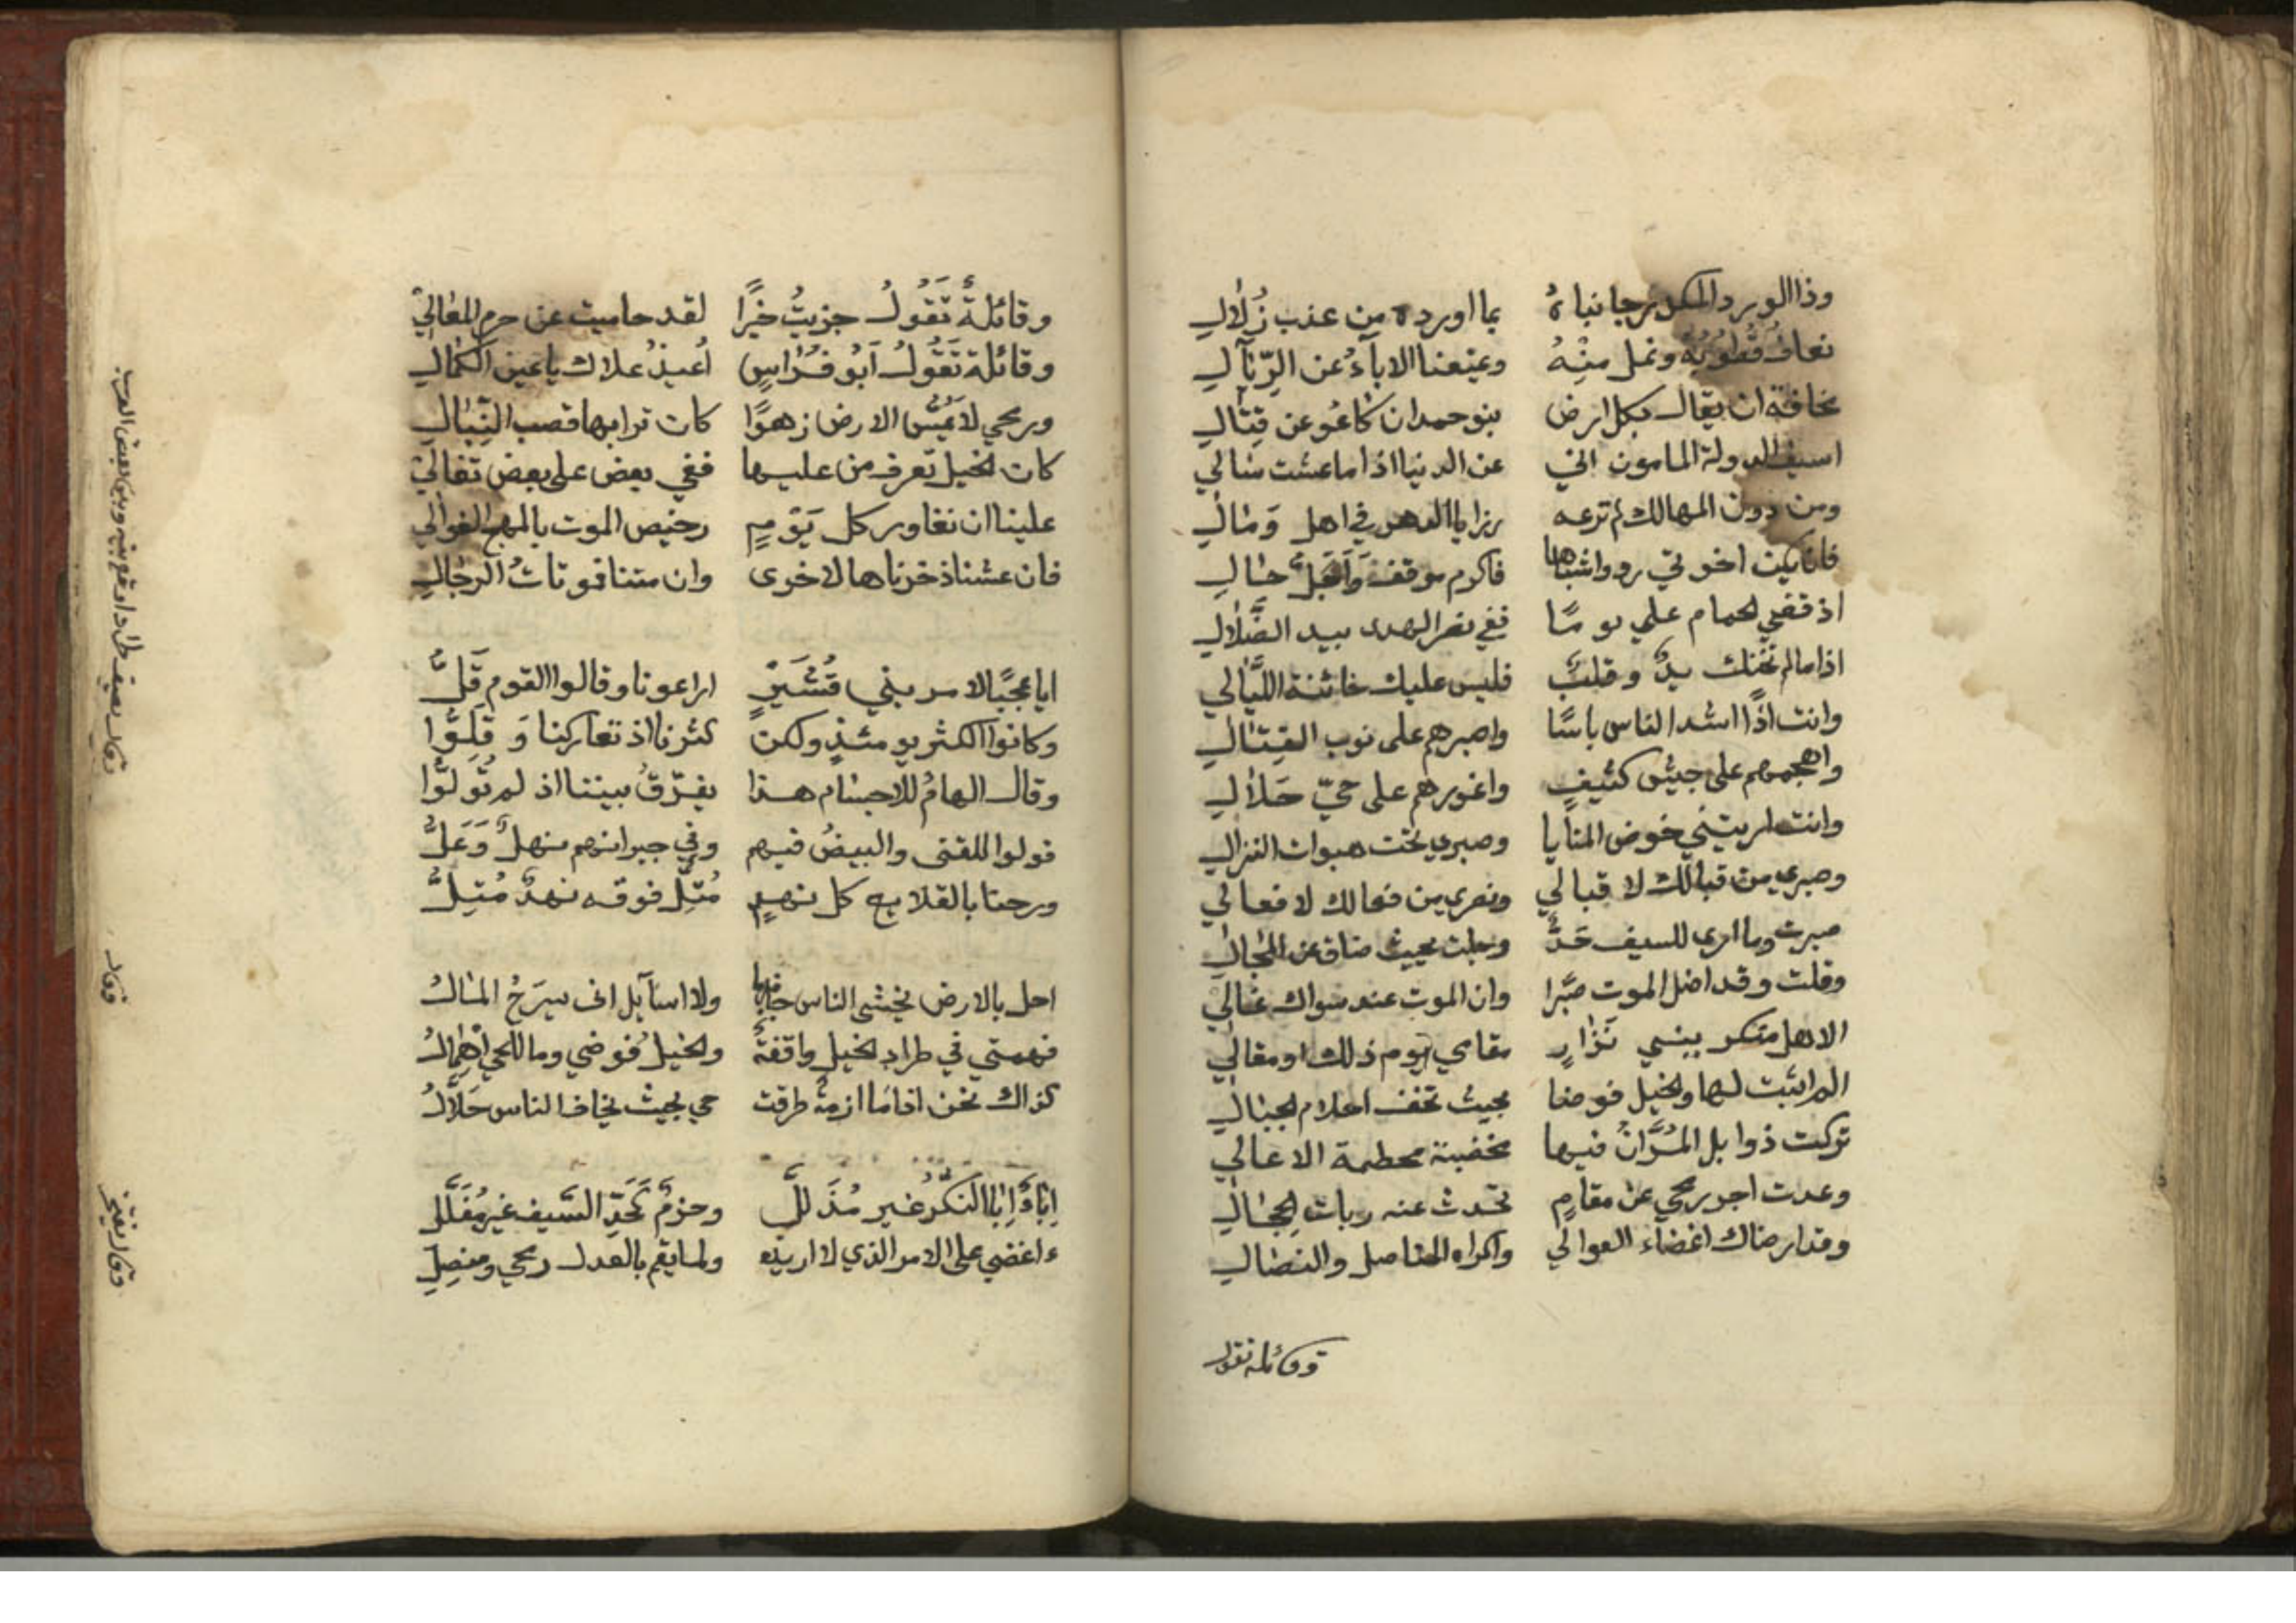 وذا الورد المكدر جانباه بما اورده من عذب زلال
نعاف قطوبه ونمل منه ويمنعنا الاباء عن الزيال
مخافة ان يقال بكل ارض بنو حمدان كاعو عن قتال
اسيف الدولة المامون اني عن الدنيا اذا ما عشت سالي
ومن دون المهالك لم ترعه رزايا الدهر في اهل وَمال
اخوتي فاكرم موقف وَاَجَلّ حال
اذ قضي الحمام علي يومًا ففي نصر الهدى بيد الضَّلال
اذا ما لم تخنك يدٌ وقلبٌ فليس عليك خائنة اللَّيالي
وانت اذًا اشد الناس باسًا واصبرهم على نوب القِتال
واهجمهم على جيش كثيفٍ واغورهم على حيّ حَلال
وانت اريتني خوض المنايا وصبري تحت هبوات النزال
وصبري من قبالك لا قبالي ونصري من فعالك لا فعالي
صبرت وما ارى للسيف حَدًّ وجلت بحيث ضاق عن المجال
وقلت وقد اضل الموت صبرا وان الموت عند سواك غالي
الا هل منكر ببني نَزارٍ مقامي يوم ذلك او مقالي
الم اثبت لها والخيل فوضا بحيث تخف احلام الجبال
تركت ذوابل المُرَّانُ فيها مخضبة محطمة الاعالي
وعدت اجر رمحي عن مقامٍ تحدث عنه ربات الحجال
وقد ارضاك اغضاء العوالي واكراه المناصل والنصال
وقائلة تقول
وقائلةٌ تَقُولُ جزيتُ خيرًا لقد حاميت عن حرم المعالي
وقائلة تَقُولُ اَبُو فِراسٍ اُعيذُ علاك يا عين الكمال
ورمحي لا يَمَسُّ الارض زهوًا كان ترابها قصب النِّبال
كان الخيل تعرف من عليها ففي بعض على بعض تغالي
علينا ان نغاور كل يَوْمٍ رخيص الموت بالمهج الغوالي
فان عشنا ذخرناها لاخرى وان متنا فموتاتُ الرجال
وقال يصف
ايا عجبًا لامر بني قُشَيْرٍ اراعونا وقالوا القوم قَلُّ
وكانوا اكثر يومئذٍ ولكن كثرنا اذ تعاركنا وَقَلِّوا
وقال الهامُ للاجسام هذا يفرّقُ بيننا اذ لم تُولّوا
فولوا للقنى والبيضُ فيهم وفي جيرانهم نهلٌ وَعَلُّ
ورحنا بالقلايع كل نهدٍ مُتِلٍّ فوقه نهدٌ مُتِلُّ
وقال
احل بالارض يخشى الناس جانبها ولا اسآيل انى يسرَحُ المالُ
فهمتي في طراد الخيل واقفةٌ والخيلُ فوضي وما للحي اهمالُ
كذاك نحن اذا ما ازمةٌ طرقت حي بحيث يخاف الناس حَلاَّلُ
وقال يفتخر
اِبَاءٌ اِبا البَكْرُ غير مُذَلَّلِ وحزمٌ كَحَدِّ السَّيف غير مُفَلَّلِ
ءاغضي على الامر الذي لا اريده ولما يقم بالعدل رمحي ومنصلِ